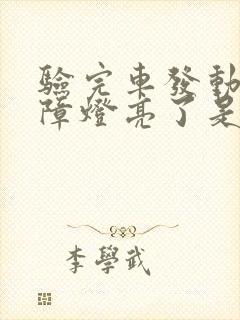 驗完車發動
障燈亮了是
李學武